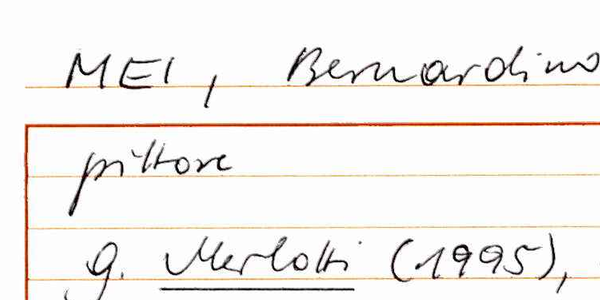 MEI, Bernardino
pittore
g. Merlotti (1995),